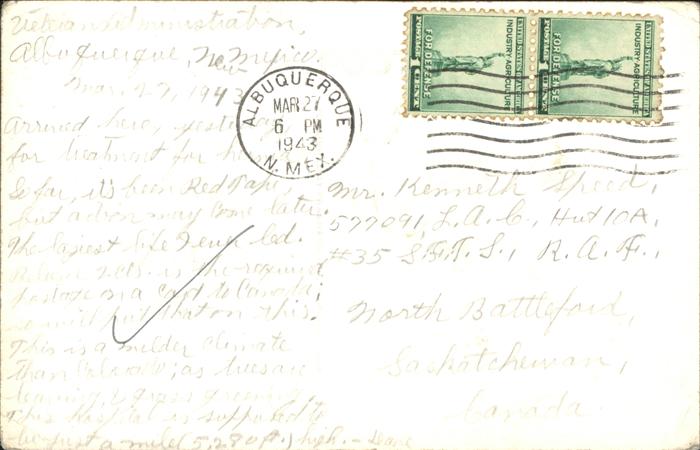 Veterans Administration,
Albuquerque, New Mexico.
Mar. 27, 1943
Arrived here, yesterday,
for treatment for
So far, it's been Red Tape,
but action may come later.
The laziest life I ever led.
2 cts. is the required
postage on a card to Canada;
so will put that on this.
This is a milder climate
than Colorado; as trees are
leaving, & grass greening.
This hospital is supposed to
be just a mile (5,280 ft.) high. –
ALBUQUERQUE
MAR 27
6 PM
1943
N. MEX.
UNITED STATES OF AMERICA
INDUSTRY AGRICULTURE
FOR DEFENSE
POSTAGE 1 CENT
UNITED STATES OF AMERICA
INDUSTRY AGRICULTURE
FOR DEFENSE
POSTAGE 1 CENT
Mr. Kenneth Speed,
577091, L.A.C., Hut 10A,
#35 S.F.T.S., R.A.F.,
North Battleford,
Saskatchewan,
Canada.